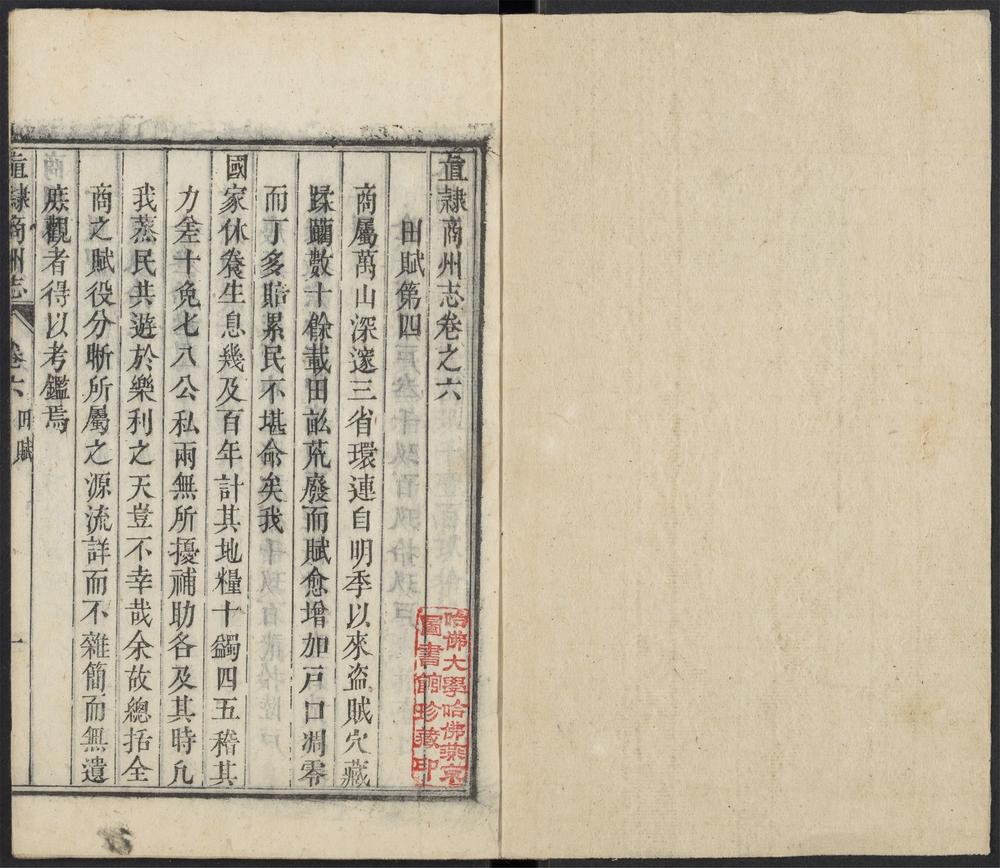 直隸商州志卷之六
田賦第四
商屬萬山深邃三省環連自明季以來盜賊穴藏
蹂躪數十餘載田畝荒廢而賦愈增加戸口凋零
而丁多賠累民不堪命矣我
國家休養生息幾及百年計其地糧十蠲四五稽其
力差十免七八公私兩無所擾補助各及其時凢
我蒸民共遊於樂利之天豈不幸哉余故總括全
商之賦役分晰所屬之源流詳而不雜簡而無遺
庶觀者得以考鑑焉
直隸商州志
卷六
田賦
一
哈佛大學哈佛燕京
圖書館珍藏印